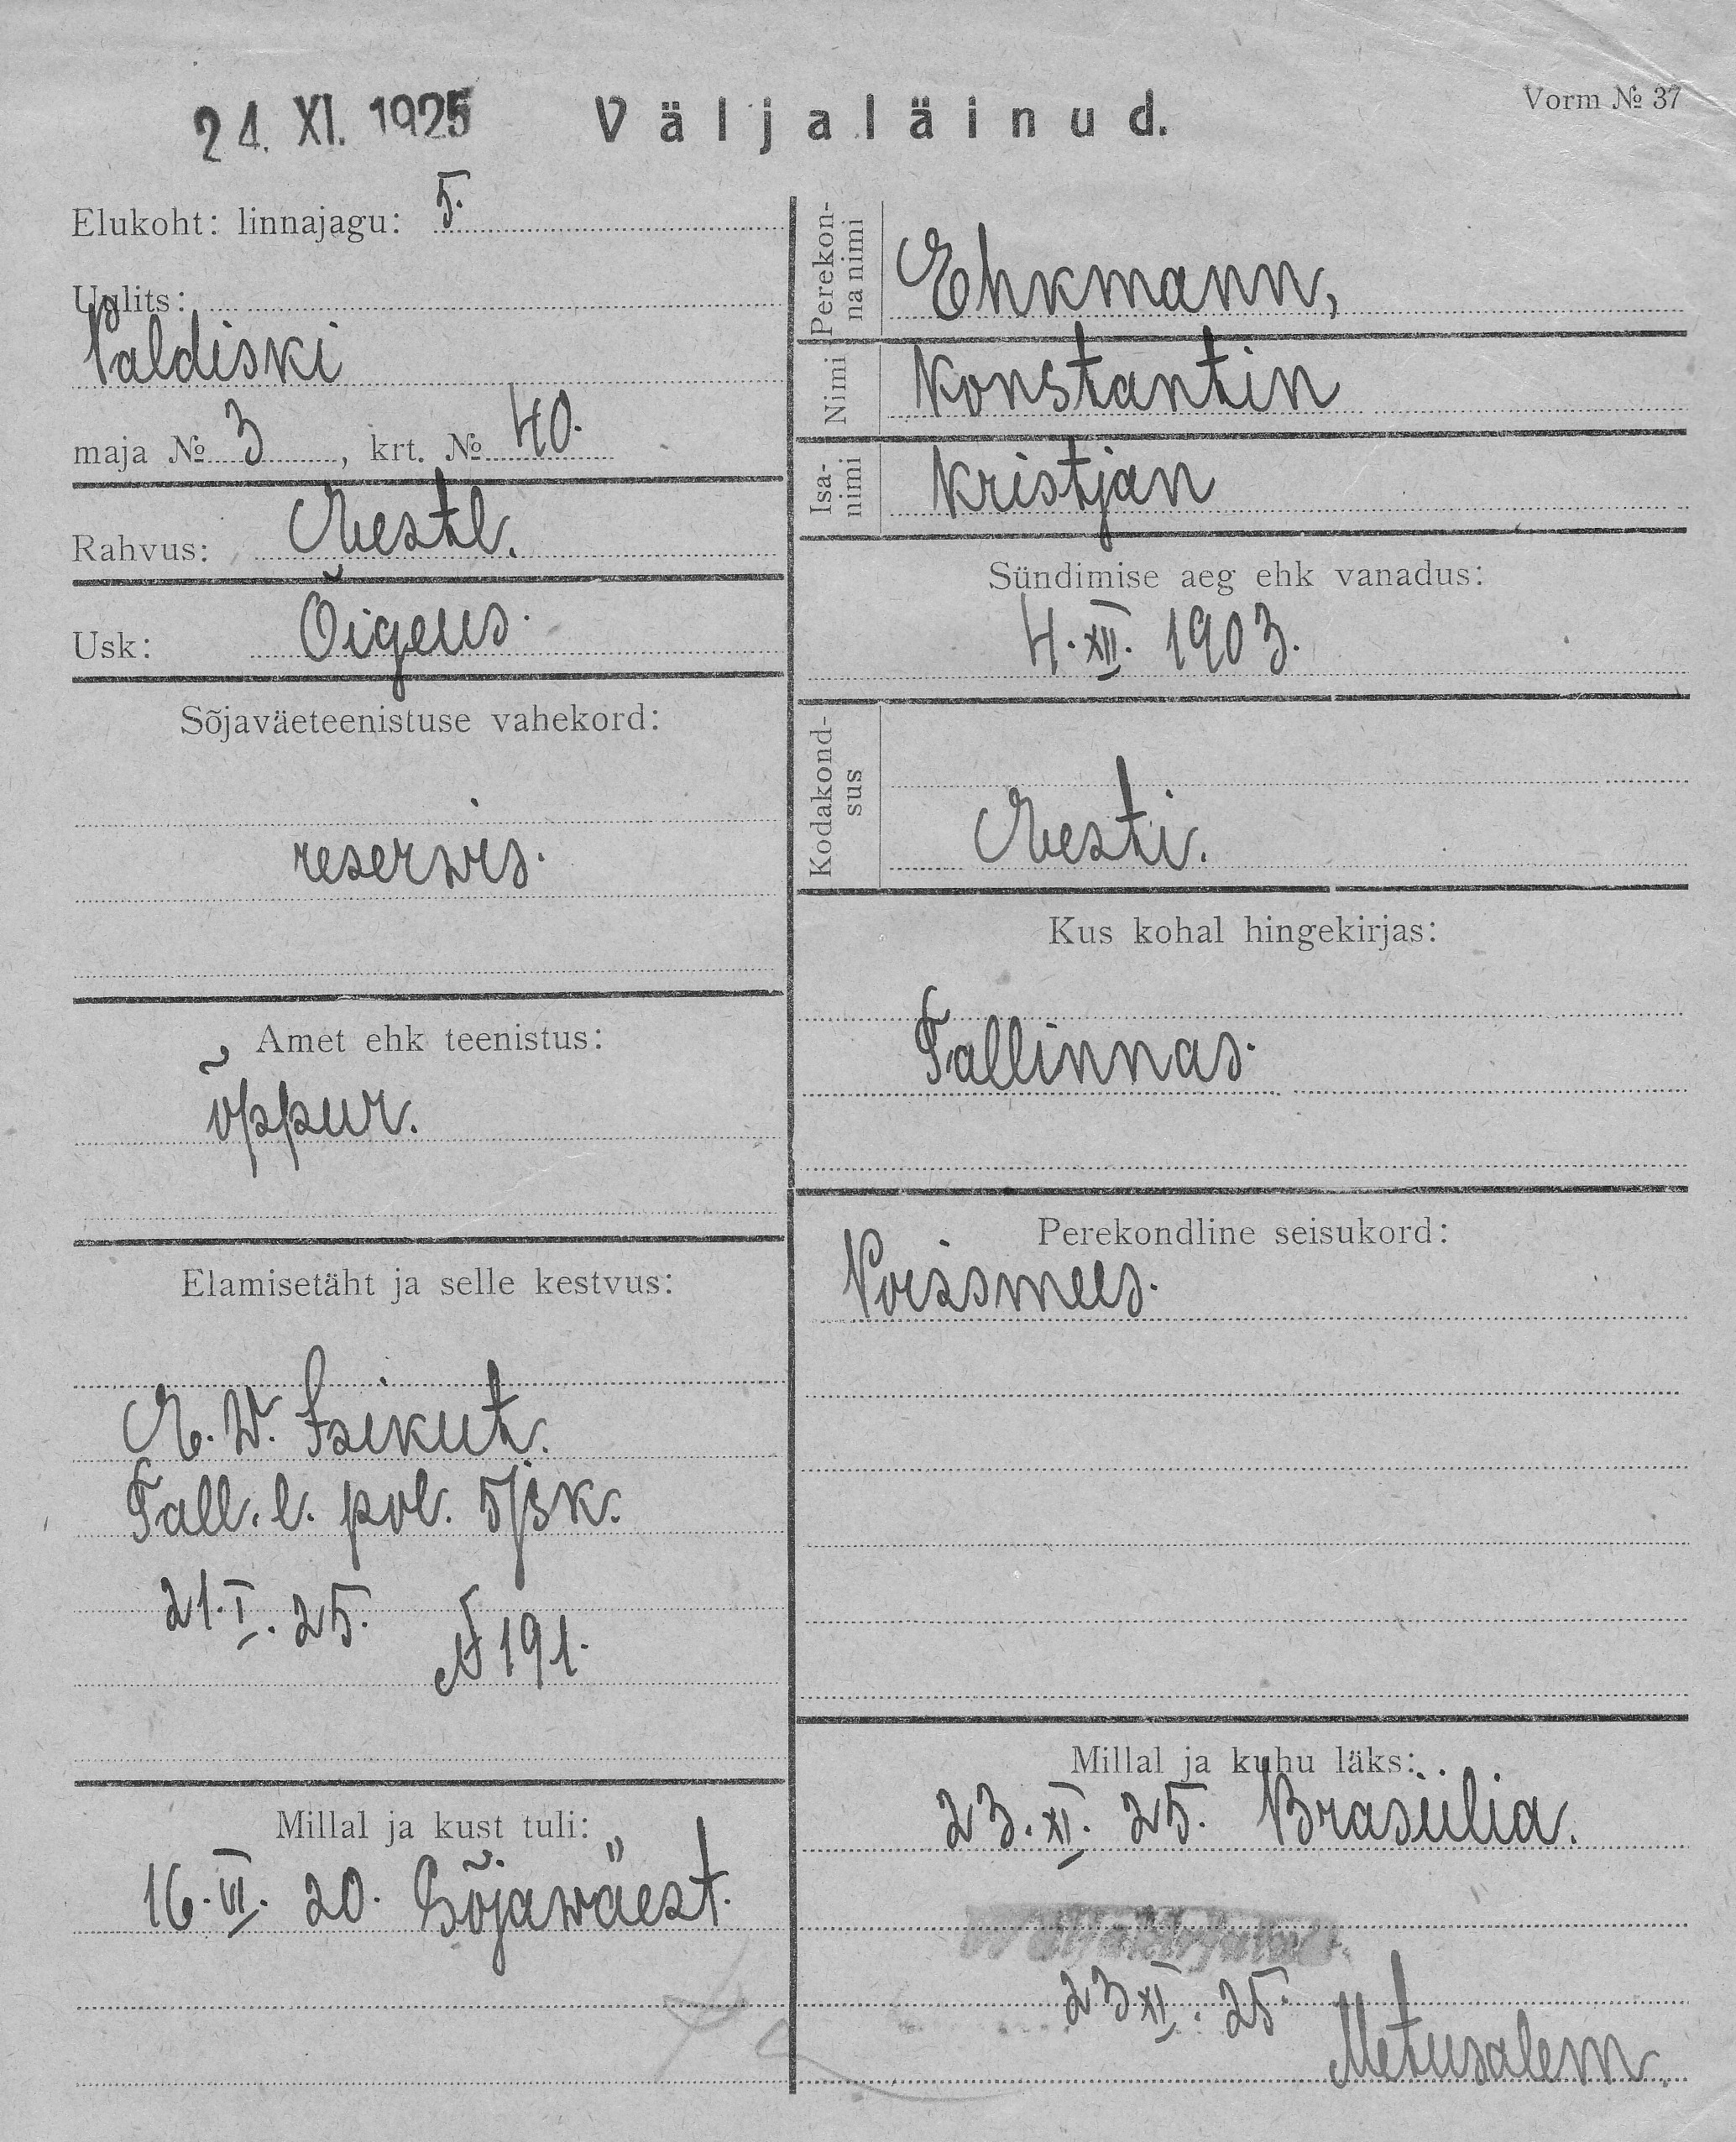 24. XI. 1925
Väljaläinud.
Vorm № 37
Elukoht: linnajagu: 5.
Uulits:
Paldiski
maja № 3, krt. № 40.
Rahvus: Eestl.
Usk: Õigeus.
Sõjaväeteenistuse vahekord:
reserwis.
Amet ehk teenistus:
õppur.
Elamisetäht ja selle kestvus:
E. W. Isikut.
Tall. l. pol. 5/jsk.
21.I.25. № 191.
Millal ja kust tuli:
16.VI. 20. Sõjawäest.
Perekonnanimi
Ehkmann,
Nimi
Konstantin
Isanimi
Kristjan
Sündimise aeg ehk vanadus:
4.XII. 1903.
Kodakondsus
Eesti.
Kus kohal hingekirjas:
Tallinnas.
Perekondline seisukord:
Poissmees.
Millal ja kuhu läks:
23.XI. 25. Brasiilia.
23 XI. 25
Metusalem.